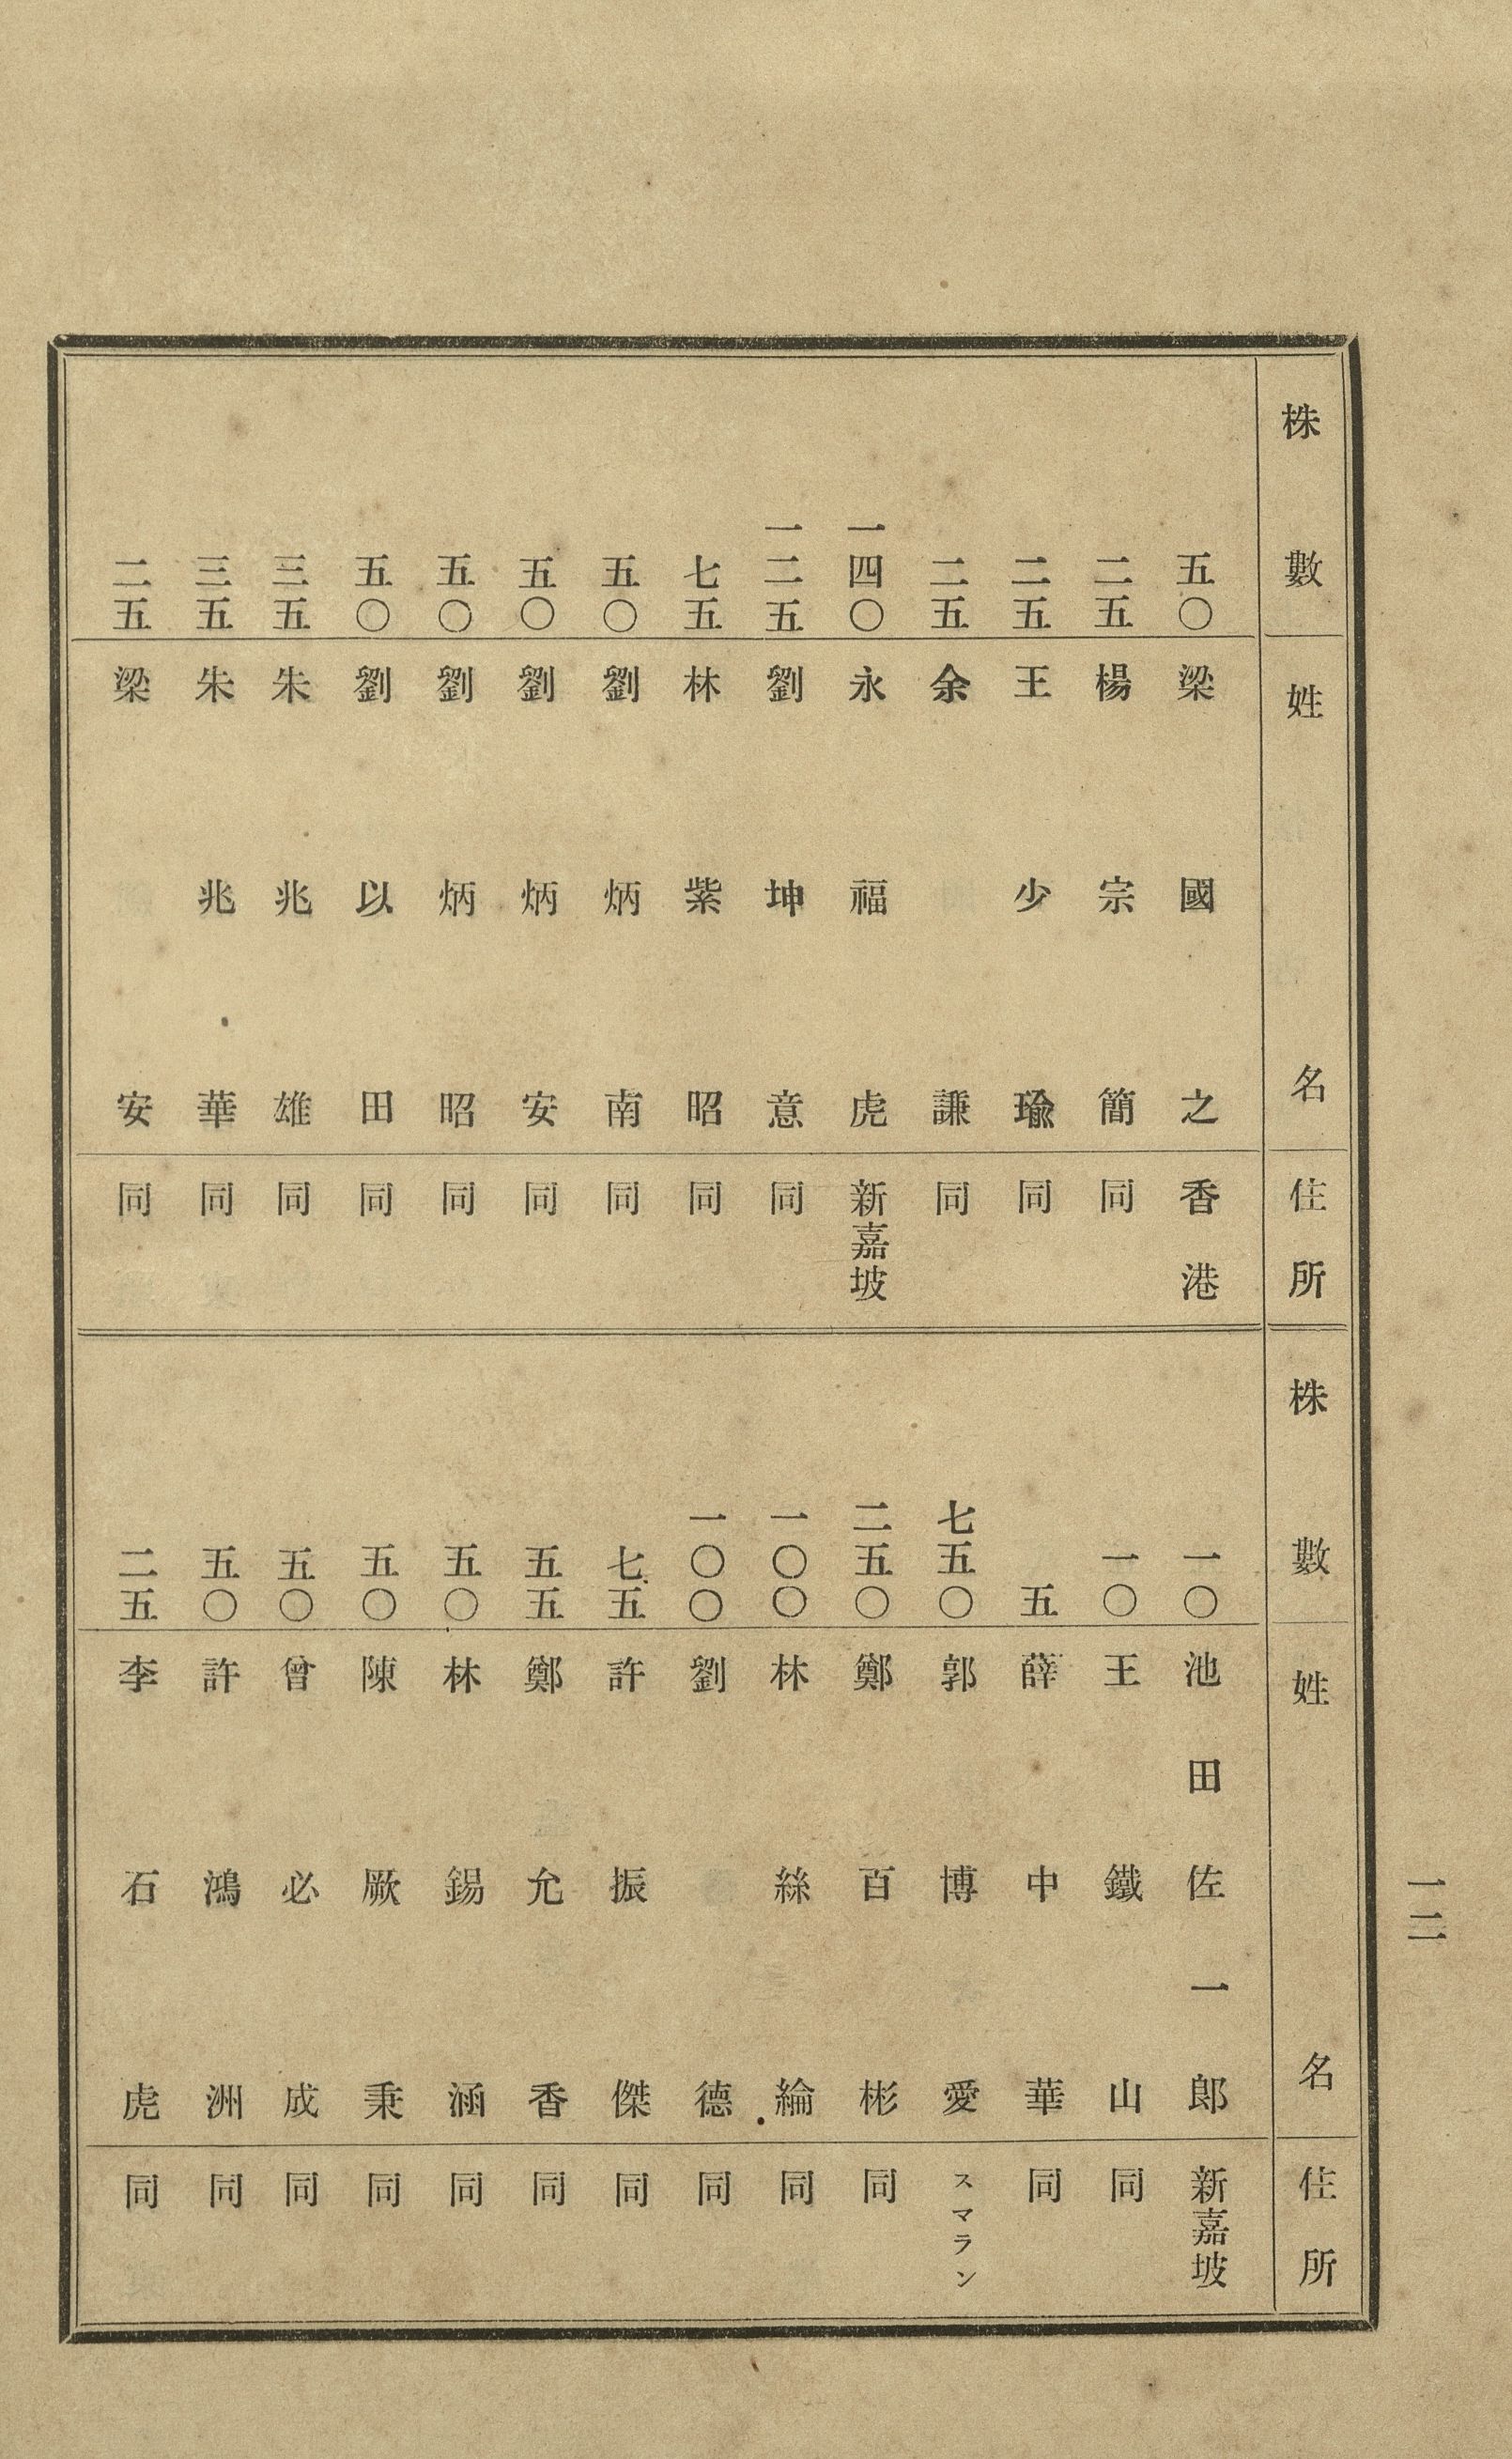 株數 姓名 住所
五〇 梁國之 香港
二五 楊宗簡 同
二五 王少瑜 同
二五 余謙 同
一四〇 永福虎 新嘉坡
一二五 劉坤意 同
七五 林紫昭 同
五〇 劉炳南 同
五〇 劉炳安 同
五〇 劉炳昭 同
五〇 劉以田 同
三五 朱兆雄 同
三五 朱兆華 同
二五 梁安 同
株數 姓名 住所
一〇 池田佐一郎 新嘉坡
一〇 王鐵山 同
五 薛中華 同
七五〇 郭博愛 スマラン
二五〇 鄭百彬 同
一〇〇 林絲綸 同
一〇〇 劉德 同
七五 許振傑 同
五五 鄭允香 同
五〇 林錫涵 同
五〇 陳厥秉 同
五〇 曾必成 同
五〇 許鴻洲 同
二五 李石虎 同
一二